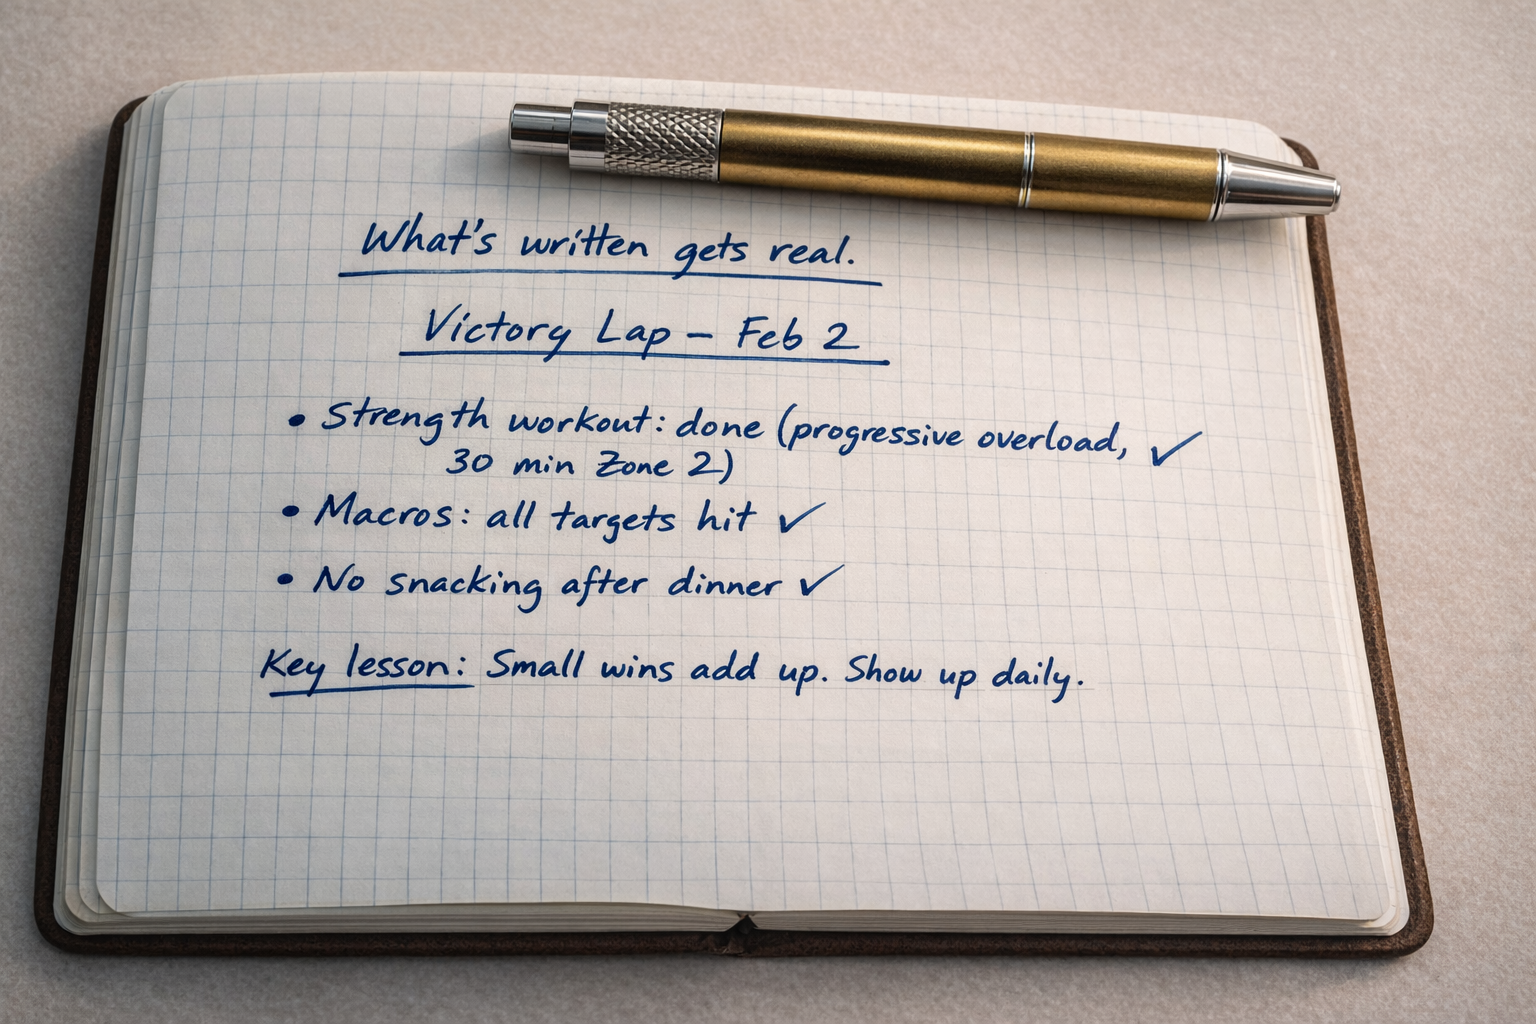 What's written gets real.
Victory Lap – Feb 2
• Strength workout: done (progressive overload, ✓
30 min Zone 2)
• Macros: all targets hit ✓
• No snacking after dinner ✓
Key lesson: Small wins add up. Show up daily.